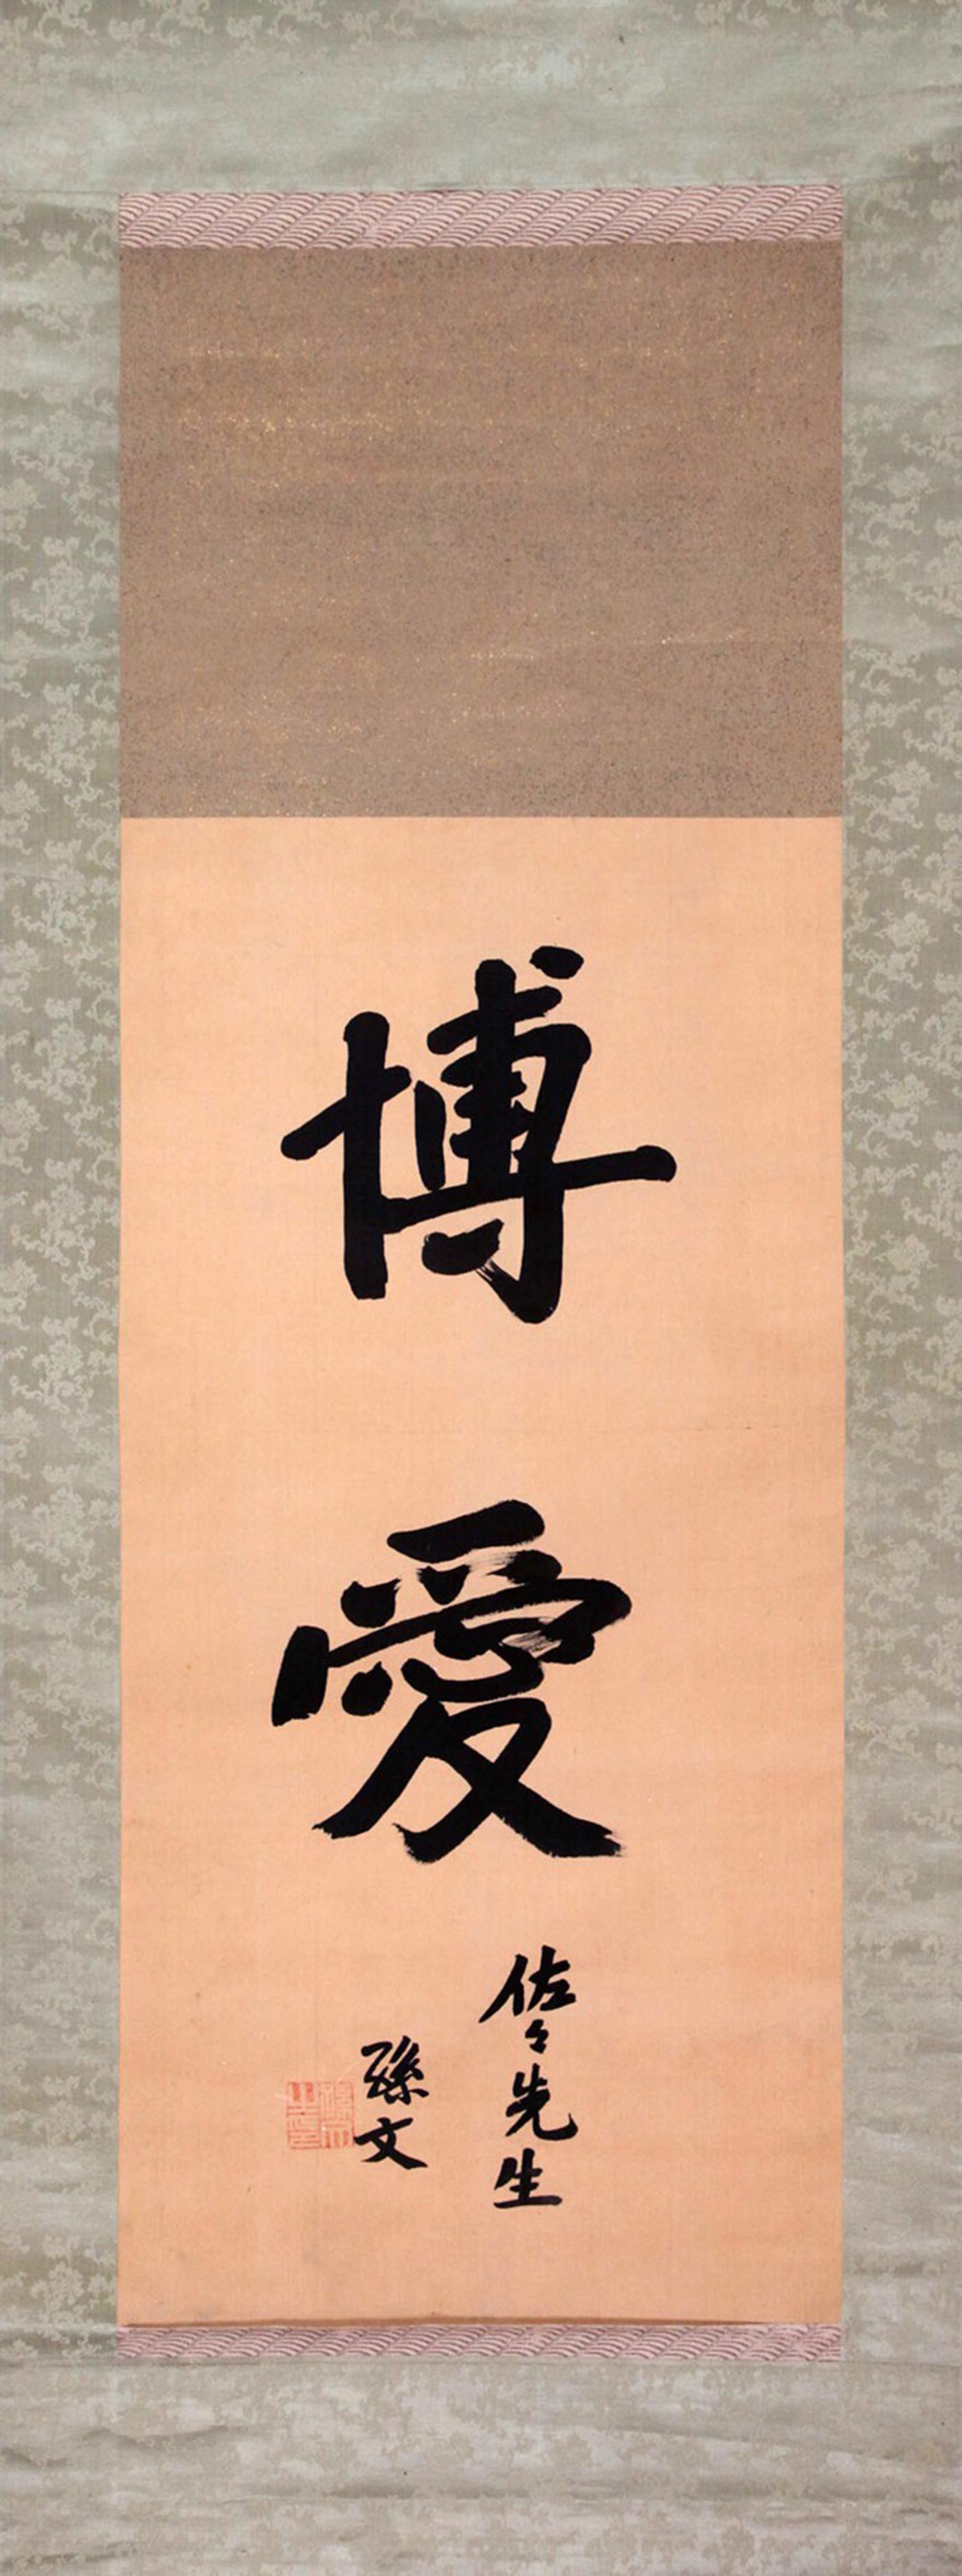 博愛
佐々先生
孫文